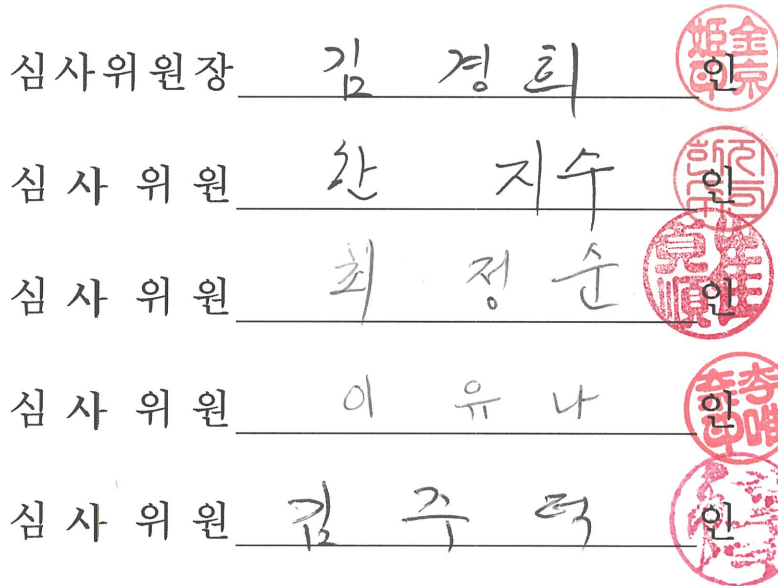 심사위원장 김 경 희 인
심 사 위 원 한 지수 인
심 사 위 원 최 정 순 인
심 사 위 원 이 유 나 인
심 사 위 원 김 주 덕 인